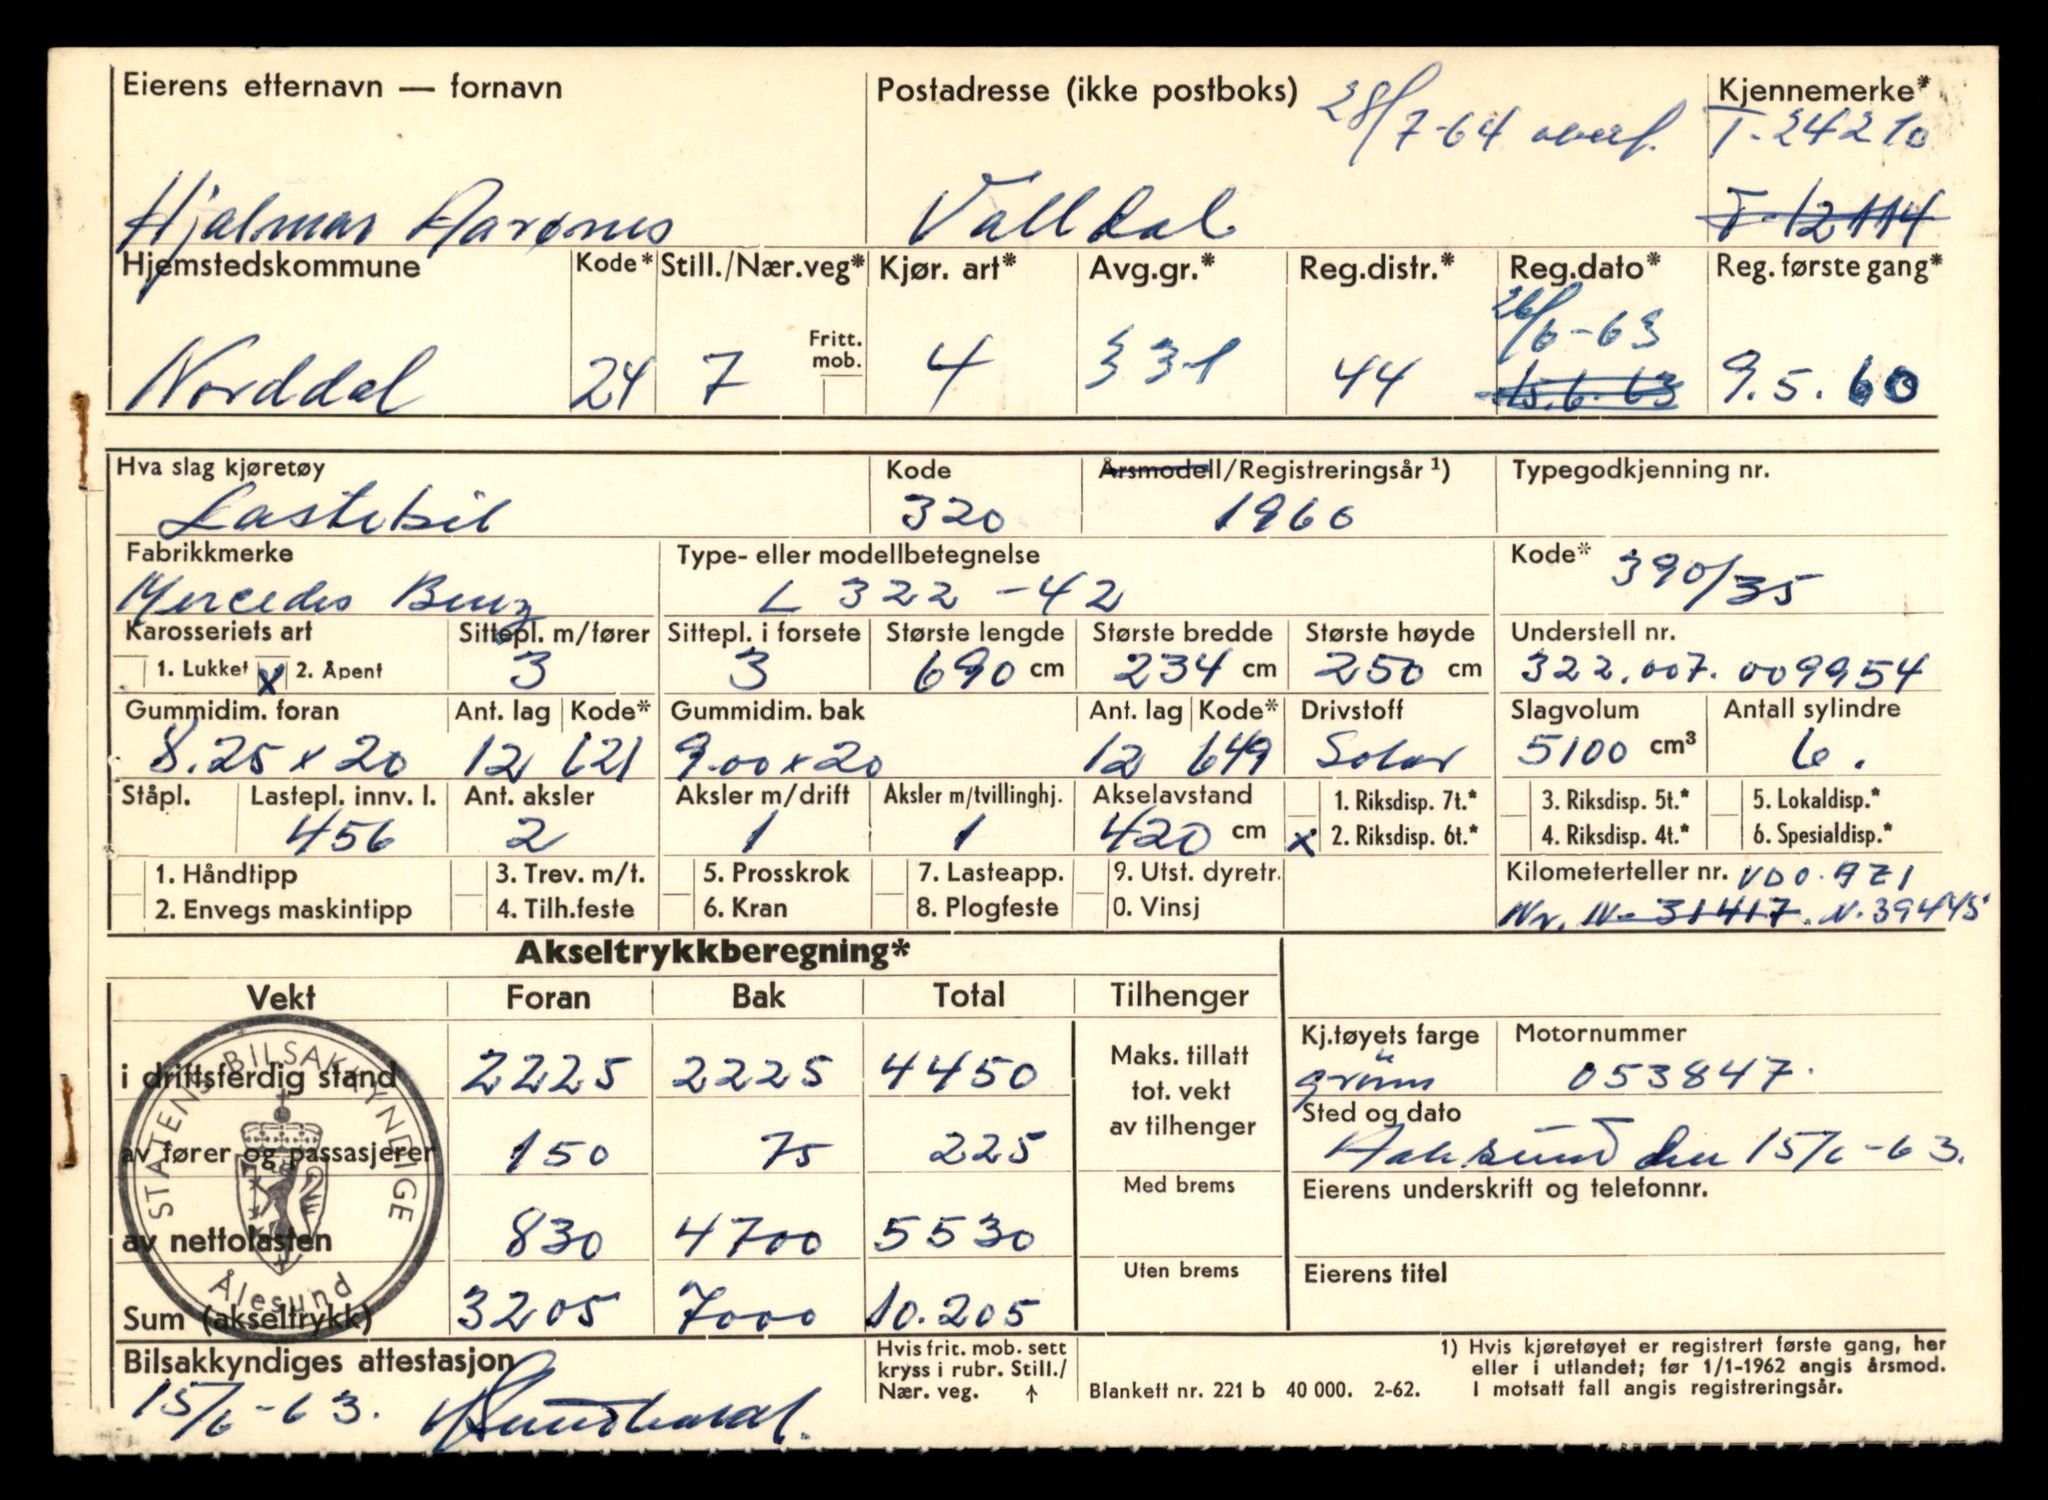 Eierens etternavn — fornavn
Postadresse (ikke postboks)
28/7-64 overf.
Kjennemerke*
T-24210
Hjalmar Aarønes
Valldal
T-12114
Hjemstedskommune
Kode*
Still./Nær.veg*
Kjør. art*
Avg.gr.*
Reg.distr.*
Reg.dato*
Reg. første gang*
Fritt.
mob.
26/6-63
Norddal
24
7
4
331
44
15.6.63
9.5.60
Hva slag kjøretøy
Kode
Årsmodell/Registreringsår ¹)
Typegodkjenning nr.
Lastebil
320
1960
Fabrikkmerke
Type- eller modellbetegnelse
Kode*
390/35
Mercedes Benz
L 322-42
Karosseriets art
Sittepl. m/fører
Sittepl. i forsete
Største lengde
Største bredde
Største høyde
Understell nr.
1. Lukket
x
2. Åpent
3
3
690 cm
234 cm
250 cm
322.007.009954
Gummidim. foran
Ant. lag
Kode*
Gummidim. bak
Ant. lag
Kode*
Drivstoff
Slagvolum
Antall sylindre
8.25 x 20
12
621
9.00 x 20
12
649
Solar
5100 cm³
6.
Ståpl.
Lastepl. innv. l.
Ant. aksler
Aksler m/drift
Aksler m/tvillinghj.
Akselavstand
1. Riksdisp. 7t.*
3. Riksdisp. 5t.*
5. Lokaldisp.*
456
2
1
1
420 cm
x
2. Riksdisp. 6t.*
4. Riksdisp. 4t.*
6. Spesialdisp.*
1. Håndtipp
3. Trev. m/t.
5. Prosskrok
7. Lasteapp.
9. Utst. dyretr.
Kilometerteller nr. VDO.AZ1
2. Envegs maskintipp
4. Tilh.feste
6. Kran
8. Plogfeste
0. Vinsj
Nr. N-31417. N.39445
Akseltrykkberegning*
Vekt
Foran
Bak
Total
Tilhenger
i driftsferdig stand
2225
2225
4450
Maks. tillatt
tot. vekt
av tilhenger
Kj.tøyets farge
Motornummer
grünn
053847.
av fører og passasjerer
150
75
225
Sted og dato
Aalesund den 15/6-63.
Med brems
Eierens underskrift og telefonnr.
av nettolasten
830
4700
5530
Uten brems
Eierens titel
Sum (akseltrykk)
3205
7000
10.205
STATENS BILSAKKYNDIGE
Ålesund
Bilsakkyndiges attestasjon
15/6-63.
Hvis frit. mob. sett
kryss i rubr. Still./
Nær. veg. ↑
Blankett nr. 221 b 40 000. 2-62.
1) Hvis kjøretøyet er registrert første gang, her
eller i utlandet; før 1/1-1962 angis årsmod.
I motsatt fall angis registreringsår.